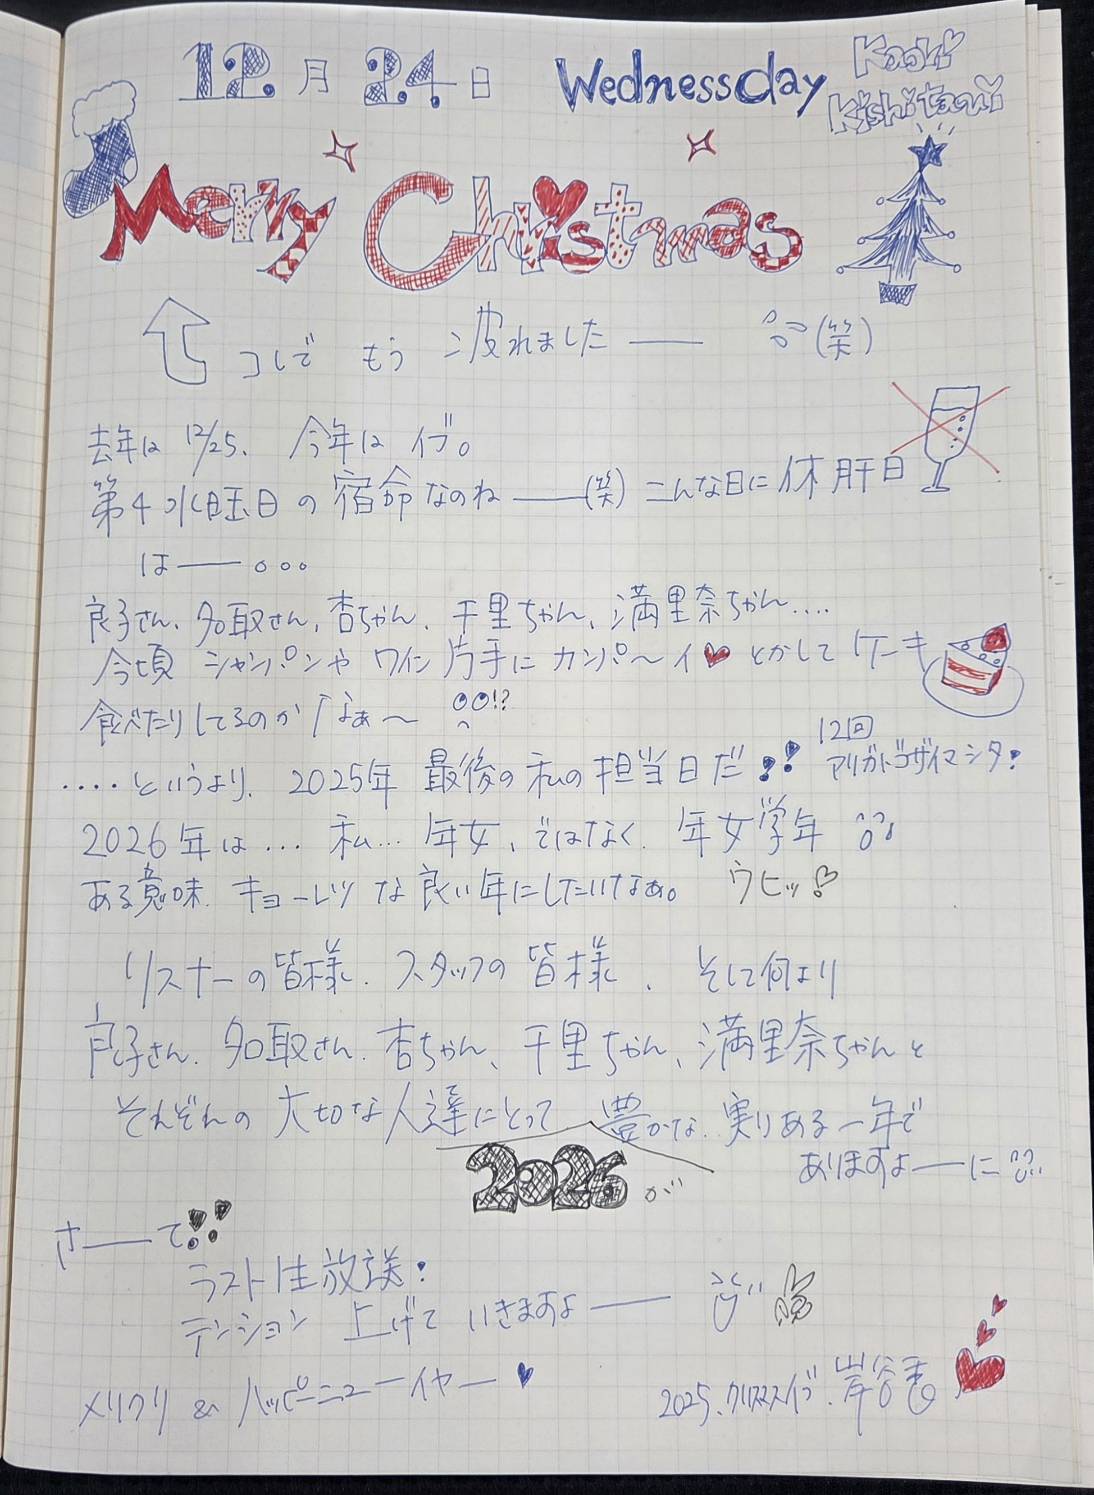 12月 24日 Wednessday Kaoki Kishitani
Merry Christmas
コレで もう 疲れました―― (笑)
去年は 12/25、今年は イブ。
第4水曜日の宿命なのね――(笑) こんな日に休肝日
は――。。。
良子さん、名取さん、杏ちゃん、千里ちゃん、満里奈ちゃん....
今頃 シャンパンや ワイン片手に カンパ〜イ♥ とかして ケーキ
食べたりしてるのかなぁ〜 !?
....というより、2025年 最後の私の担当日だ!! 12回 アリガトゴザイマシタ!
2026年は... 私... 年女、ではなく、年女学年
ある意味、キョーレツな良い年にしたいなぁ。 ウヒッ♡
リスナーの皆様、スタッフの皆様、そして何より
良子さん、名取さん、杏ちゃん、千里ちゃん、満里奈ちゃんと
それぞれの大切な人達にとって 豊かな、実りある一年で
ありますよ――に
2026が
さ――て!!
ラスト生放送!
テンション 上げて いきますよ――
メリクリ & ハッピーニューイヤー♥
2025.クリスマスイブ.岸谷香